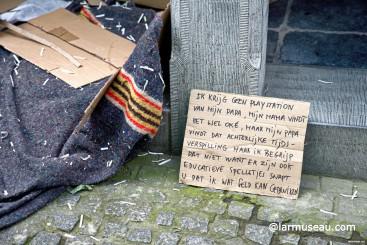 IK KRIJG GEEN PLAYSTATION
VAN MIJN PAPA, MIJN MAMA VINDT
HET WEL OKÉ, MAAR MIJN PAPA
VINDT DAT ACHTERLIJKE TIJDS-
VERSPILLING MAAR IK BEGRIJP
DAT NIET WANT ER ZIJN OOK
EDUCATIEVE SPELLETJES SNAPT
U DAT IK WAT GELD KAN GEBRUIKEN
© larmuseau.com
© larmuseau.com